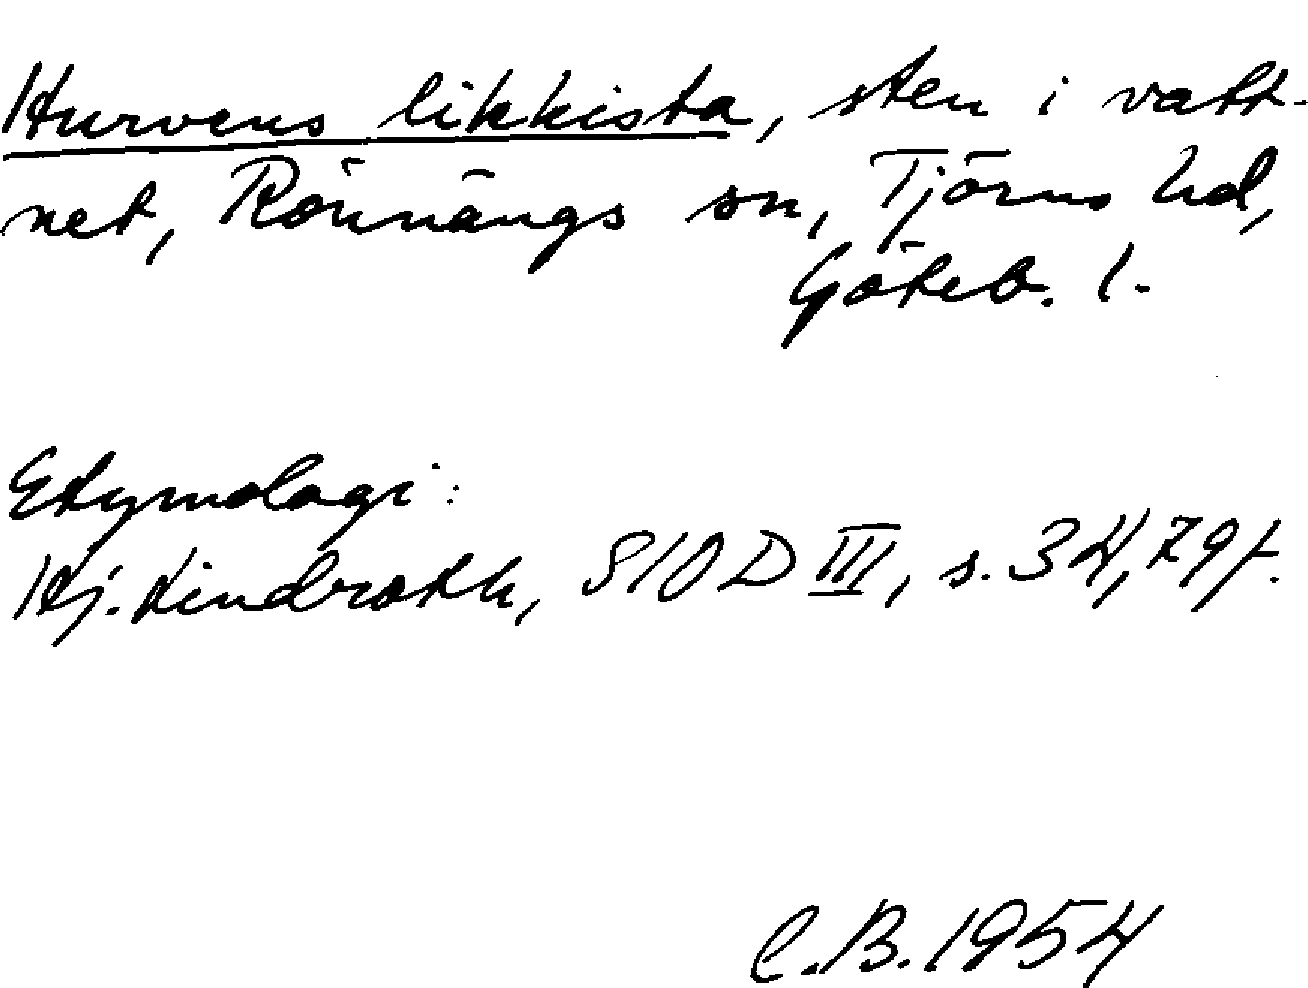 Hurvens likkista, sten i vatt-
net, Rönnängs sn, Tjörns hd,
Göteb. l.
Etymologi:
Hj. Lindroth, SIOD III, s. 34, 79 f.
C.B. 1954